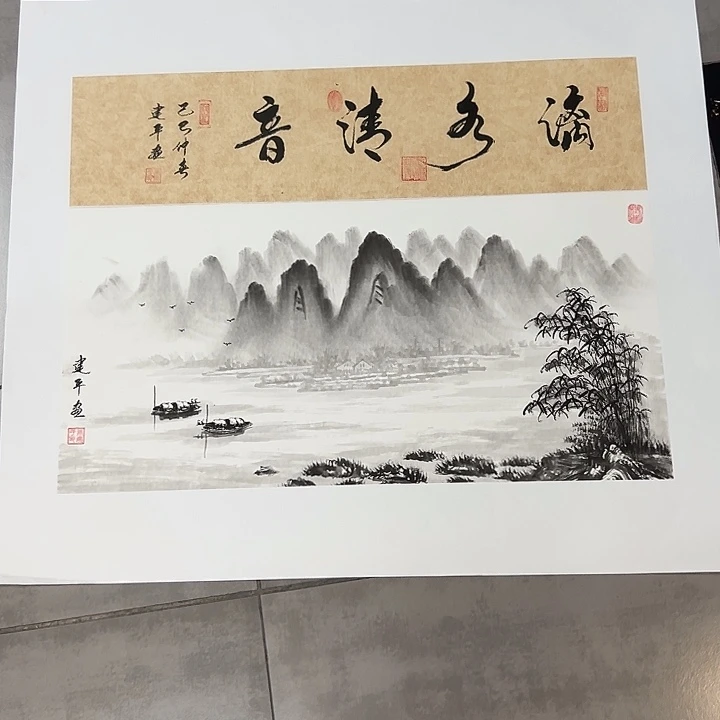 漓水清音
己巳仲春
建平畫
建平畫